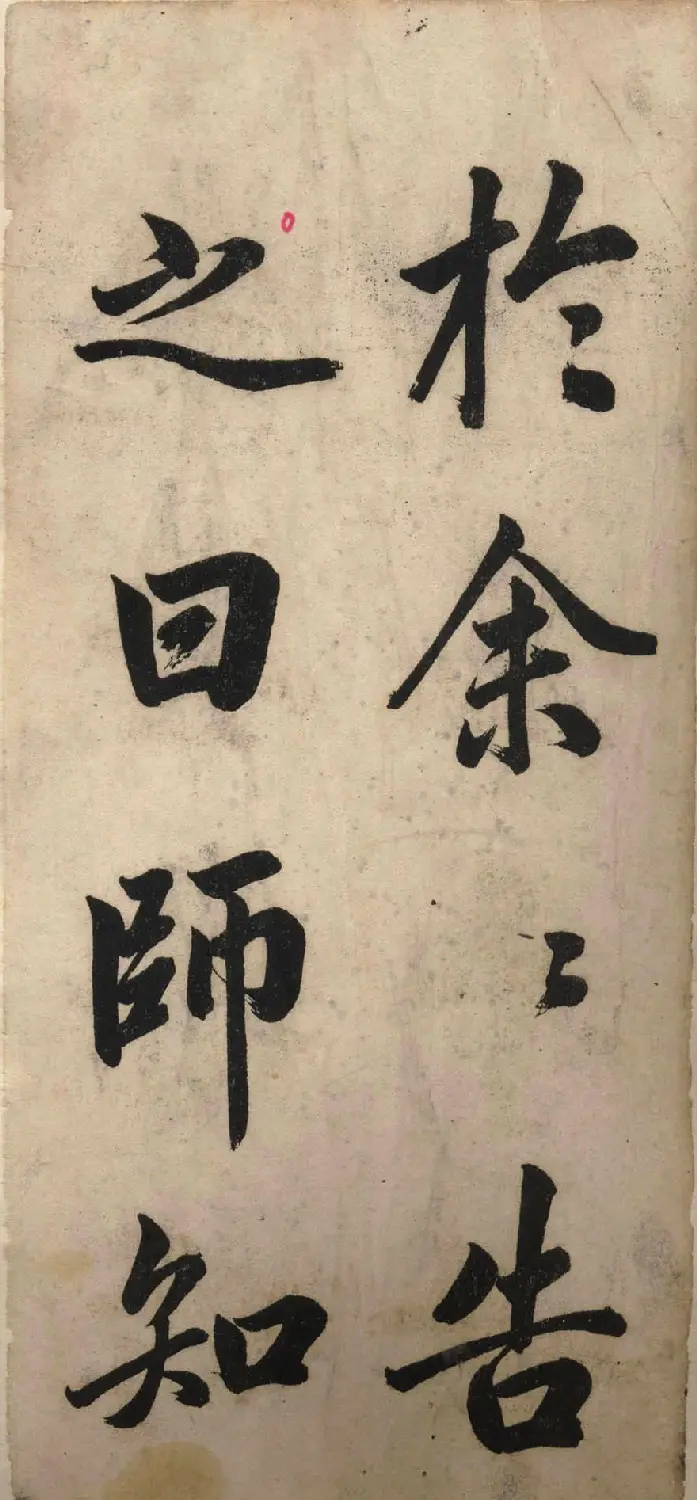 於余〻告
之曰師知